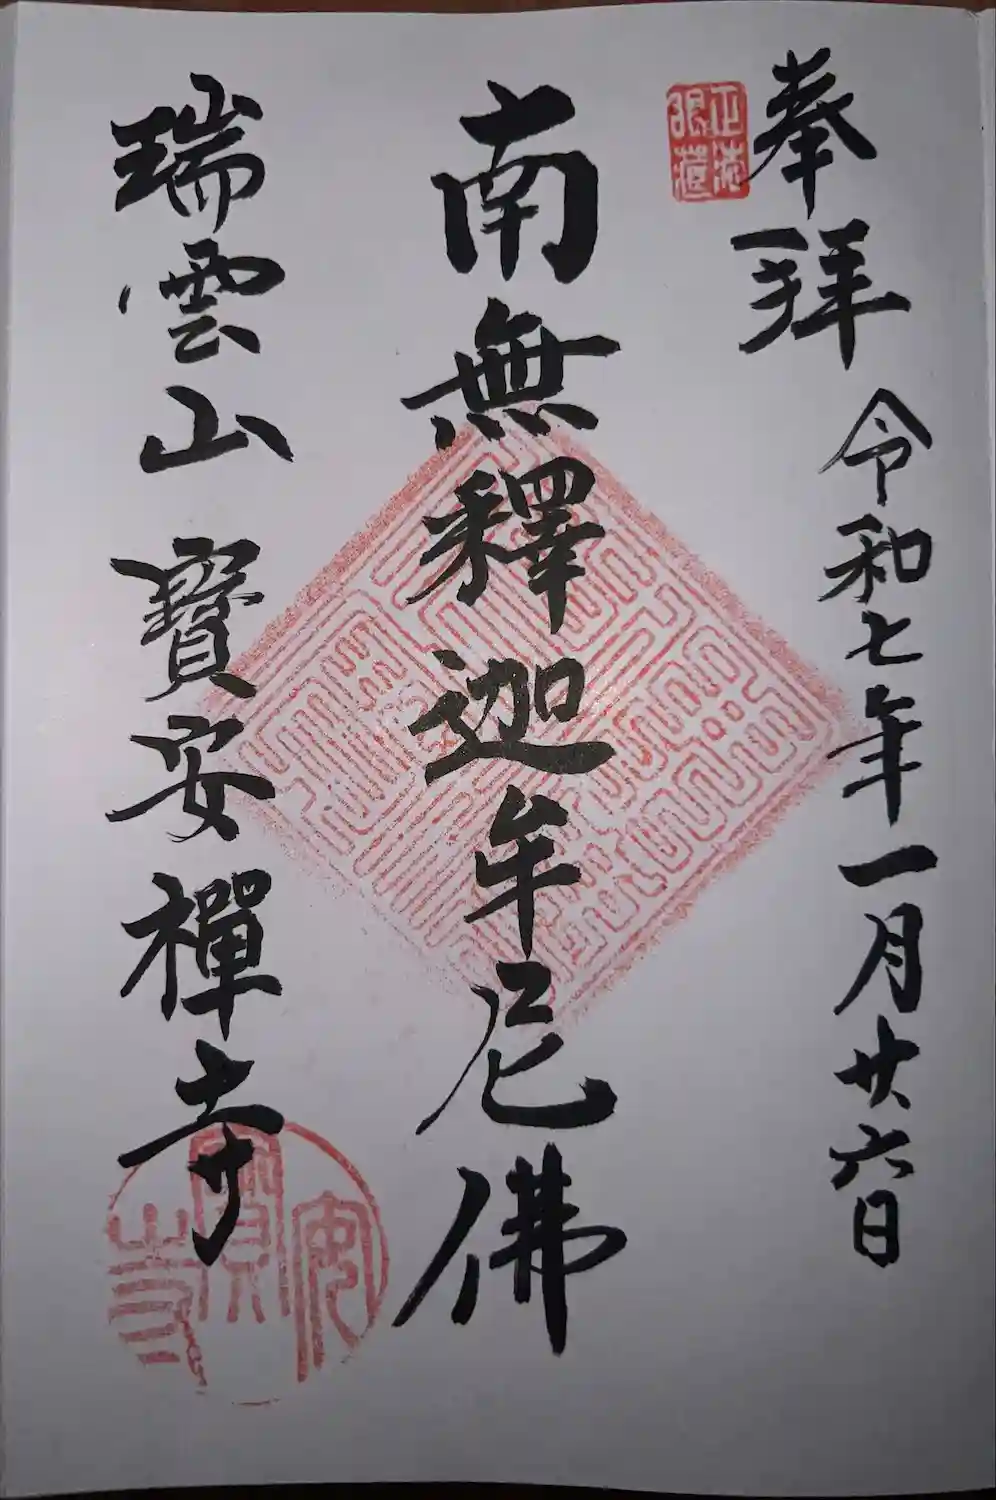 奉拝
令和七年一月廿六日
正法
眼蔵
南無釋迦牟尼佛
瑞雲山寶安禪寺
寶安寺